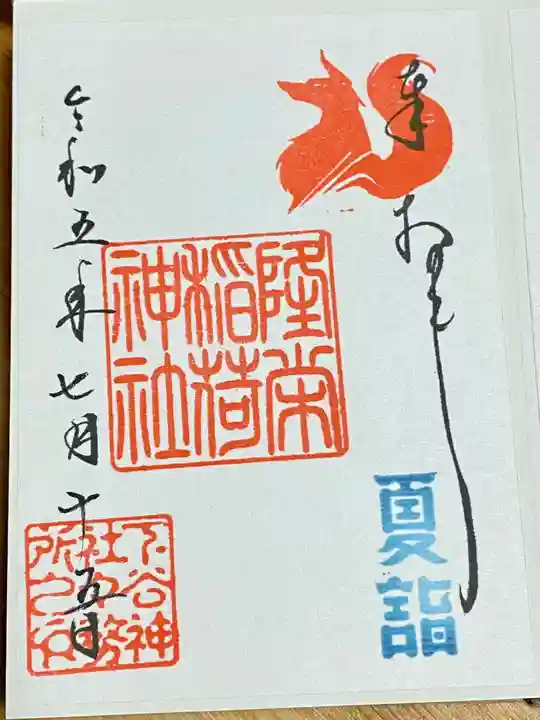 奉拝
夏詣
隆栄
稲荷
神社
令和五年七月十五日
下谷神
社社務
所之印